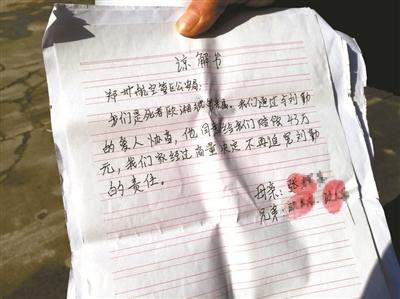 谅解书
郑州航空港区公安局:
我们是死者欧湘 家属。我们通过与刘勤
的家人协商,他同意给我们赔偿43万
元,我们家经过商量决定不再追究刘勤
的责任。
母亲:张
兄弟: